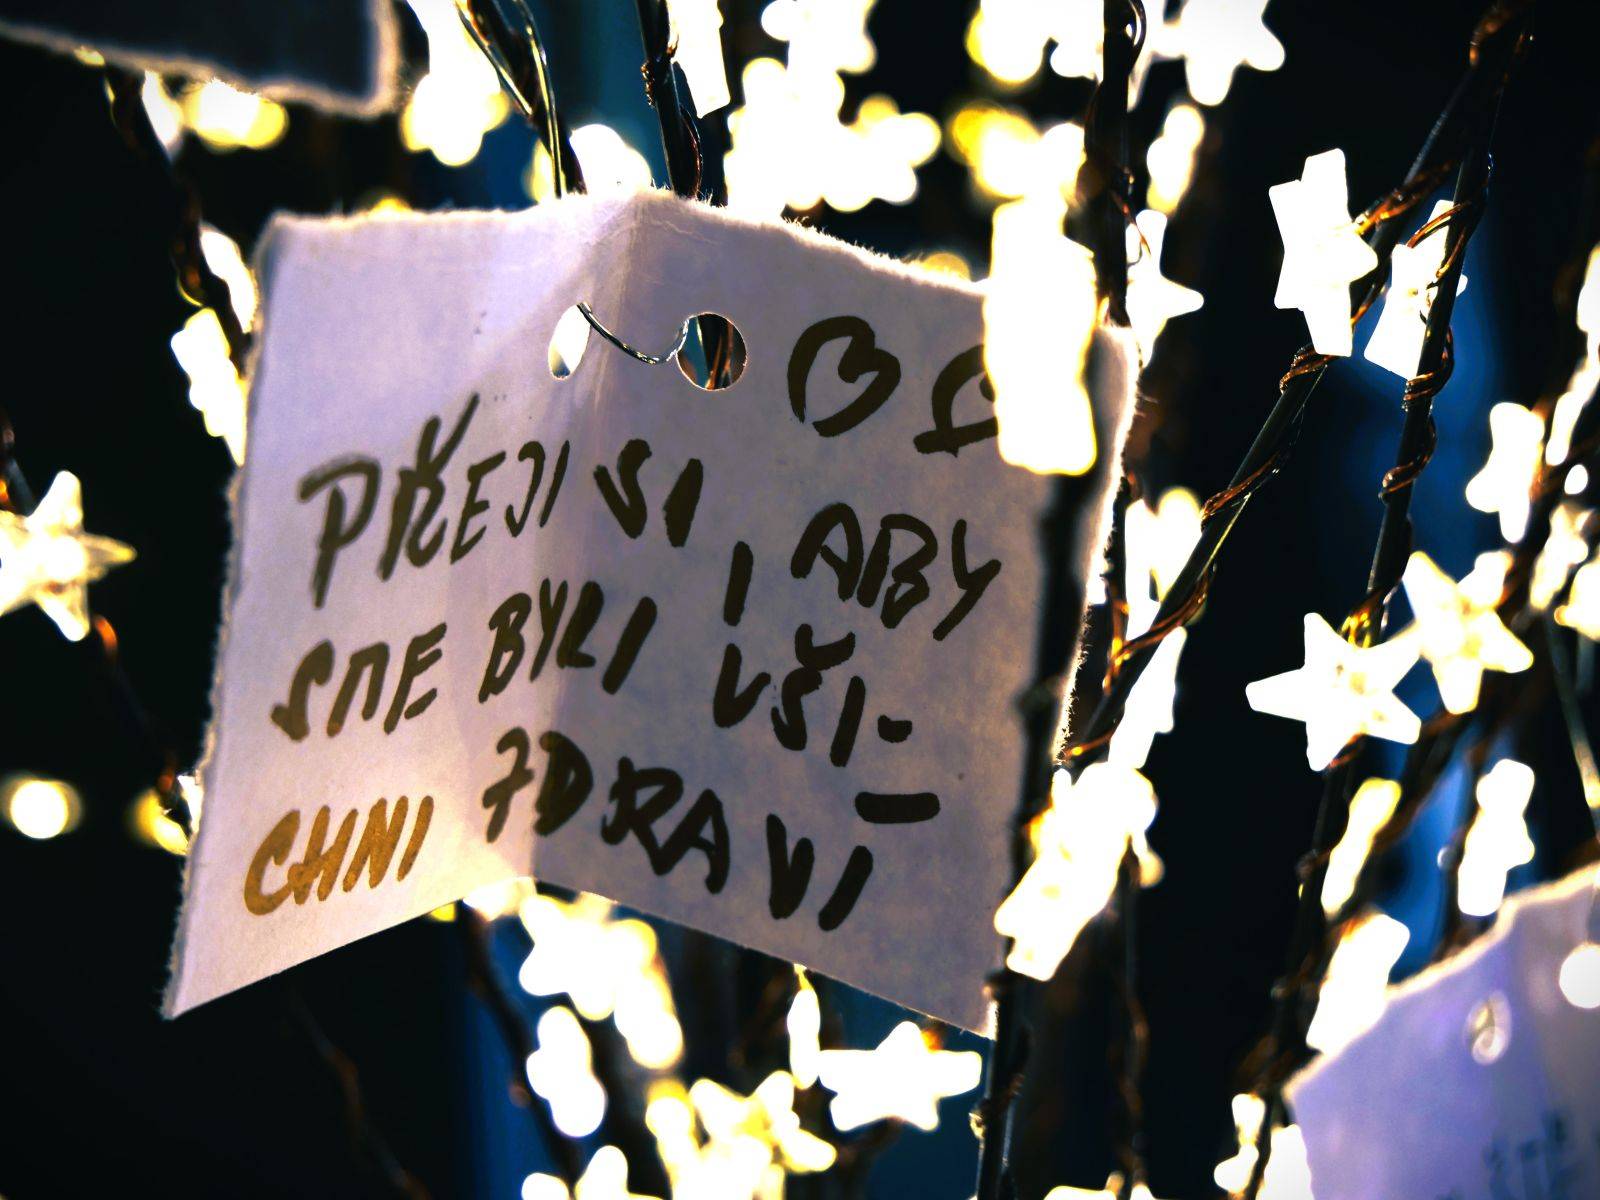 PŘEJI SI, ABY
SME BYLI VŠI-
CHNI ZDRAVI